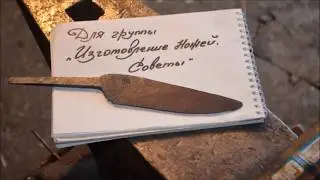 Для группы
„Изготовление Ножей.
Советы"